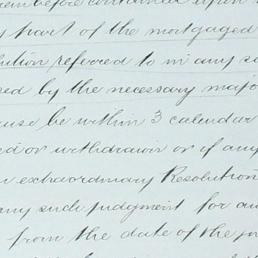 before contained upon
part of the mortgaged
lution referred to in any su
sed by the necessary majo
ause be within 3 calendar
ed or withdrawn or if any
n extraordinary Resolution
any such judgment for an
from the date of the